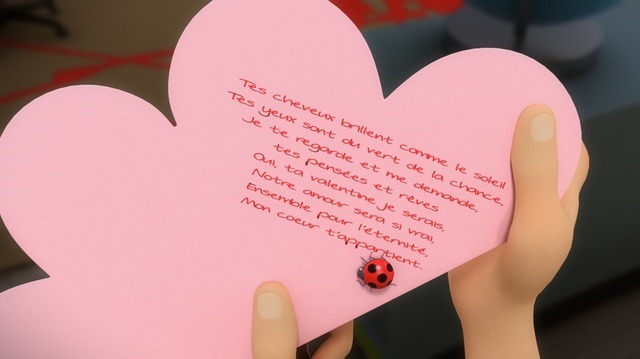 Tes cheveux brillent comme le soleil
Tes yeux sont du vert de la chance,
Je te regarde et me demande,
tes pensées et rêves
Oui, ta valentine je serais,
Notre amour sera si vrai,
Ensemble pour l'éternité,
Mon coeur t'appartient.